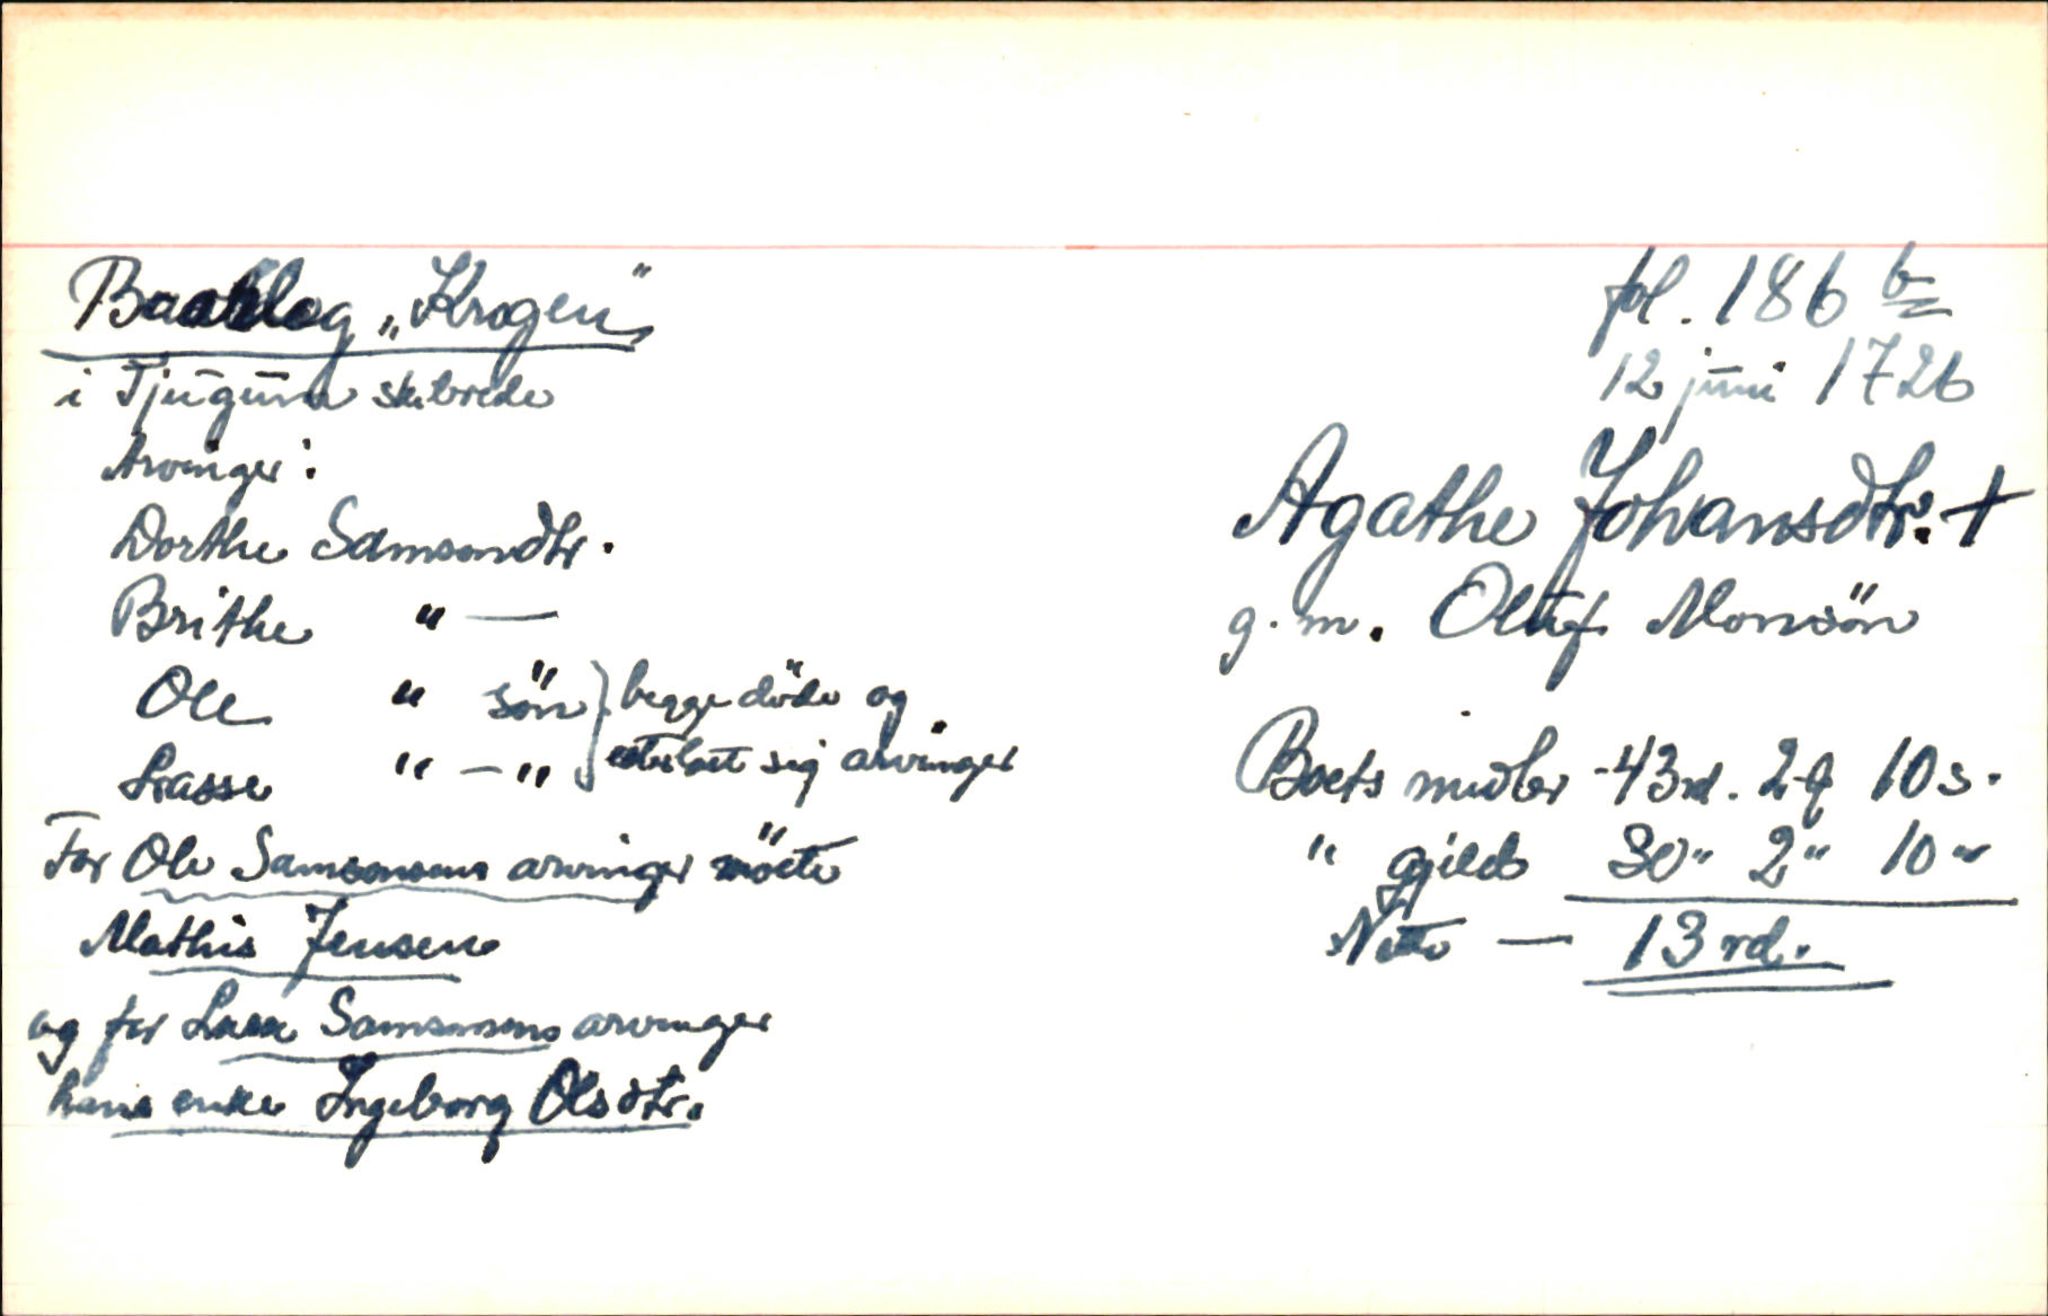 „Krogen"
i Tjugum skibrede
Arvinger:
Dorthe Samsondtr.
Brithe " —
Ole " sön } begge döde og
Lasse " – " } efterlatt sig arvinger
For Ole Samsonsens arvinger mötte
Mathis Jensen
og for Lasse Samsonsens arvinger
hans enke Ingeborg Olsdtr.
fol. 186 b
12 juni 1726
Agathe Johansdtr. +
g. m. Oluf Monsön
Boets midler - 43 rd. 2 q 10 s.
" gjeld 30 " 2 " 10 "
Netto — 13 rd.